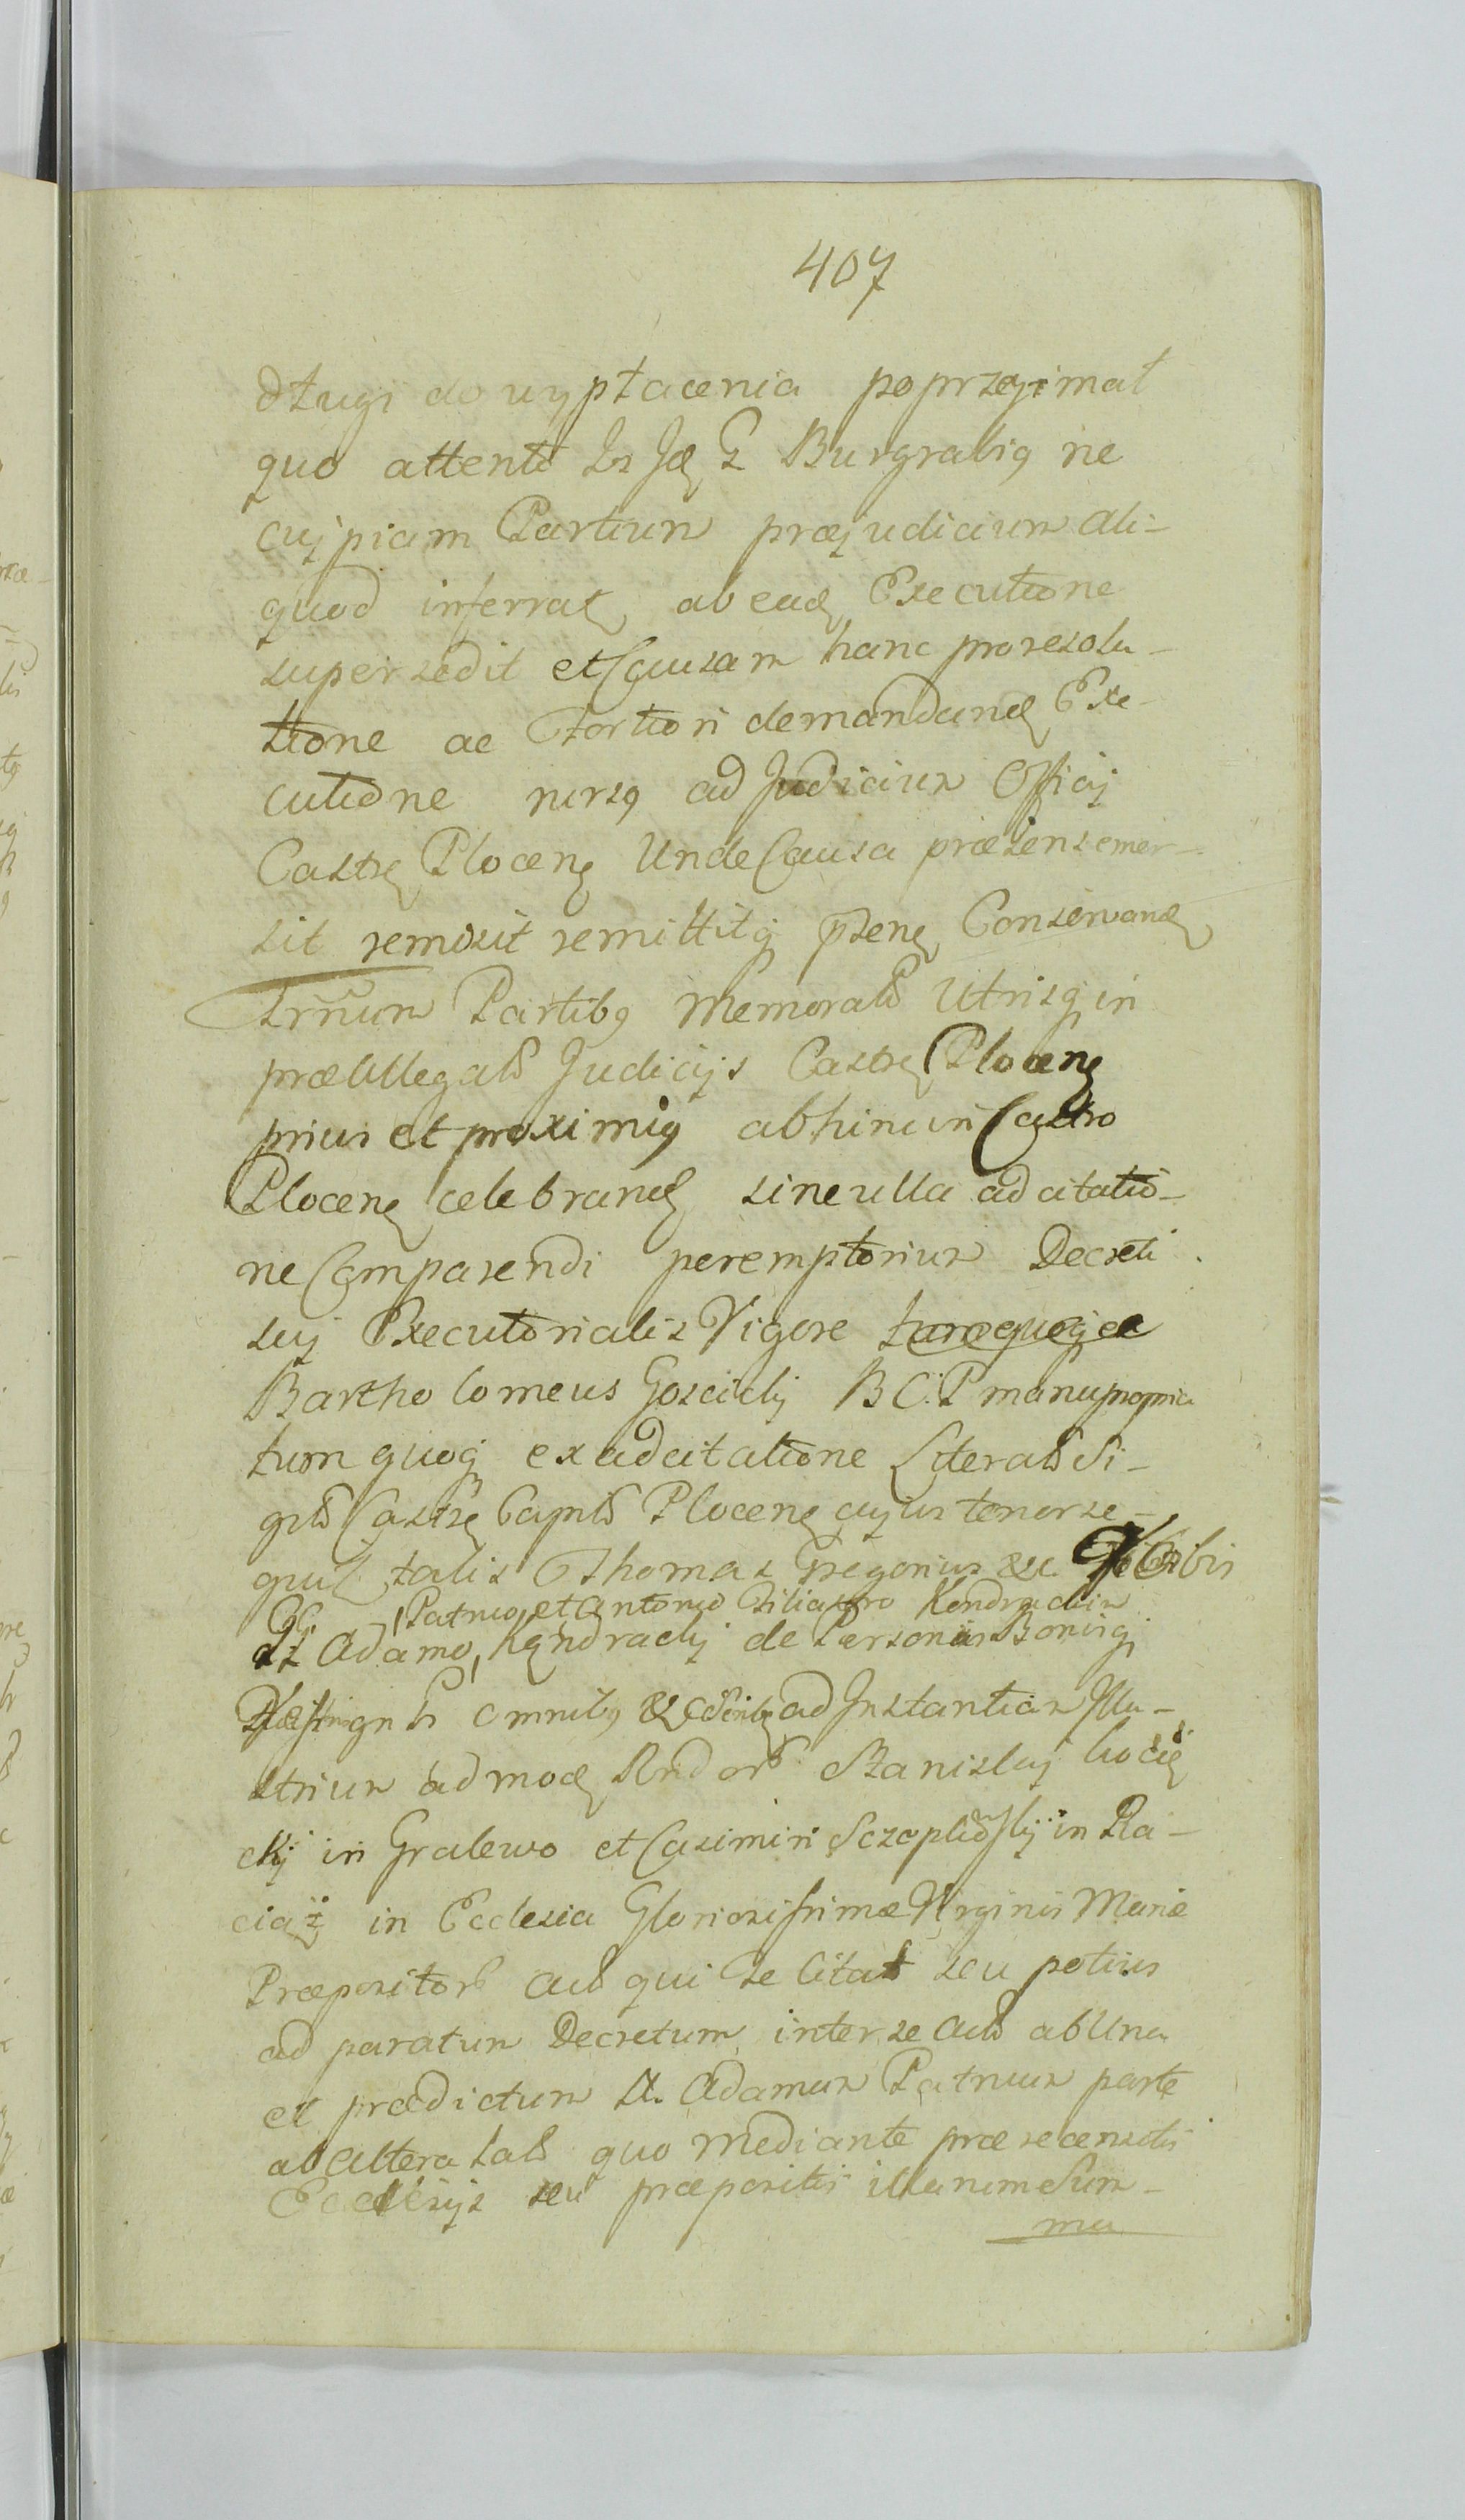 407
długi do wypłacenia poprzejmał
quo attento Burgrabiq ne
cujpiam Partium præjudicium ali-
quod inferrat ab ead Executione
supersedit et Causam hanc pro resolu-
tione ac Fortiori demandand Exe-
cutione rursq ad Judicium Officij
Castre Plocen Unde Causa præsens emer-
sit remisit remittitq Conservand
Trnum Partibq Memorat Utrisq in
præallegat Judicijs Castre Plocen
prius et proximiq abhinc in Castro
Plocen celebrand sine ulla adcitatio-
ne Comparendi peremptorium Decreti
suj Executorialis Vigore
Bartholomeus Goscicky B C. P manu propria
tum quoq ex adcitatione Literat Si-
gill Castre Capit Plocen cujus tenor se-
quit talis Thomas Gregorius &c. Vobis
Patruo, et Antonio Filiastro Kendrackim
Adamo, Kendracky de Personis Bonisq
omnibq ad Instantiam Illu-
strium admod Rndor Stanislaj
cky in Gralewo et Casimiri in Ra-
ciąż in Ecclesia Gloriosissimæ Virginis Mariæ
Præpositor Act qui Te Citat seu potius
ad paratum Decretum inter se Act ab Una
et prædictum Adamum Patruum parte
ab altera lat quo mediante præecensitis
Ecclesijs seu præpositis illarum Sum-
ma